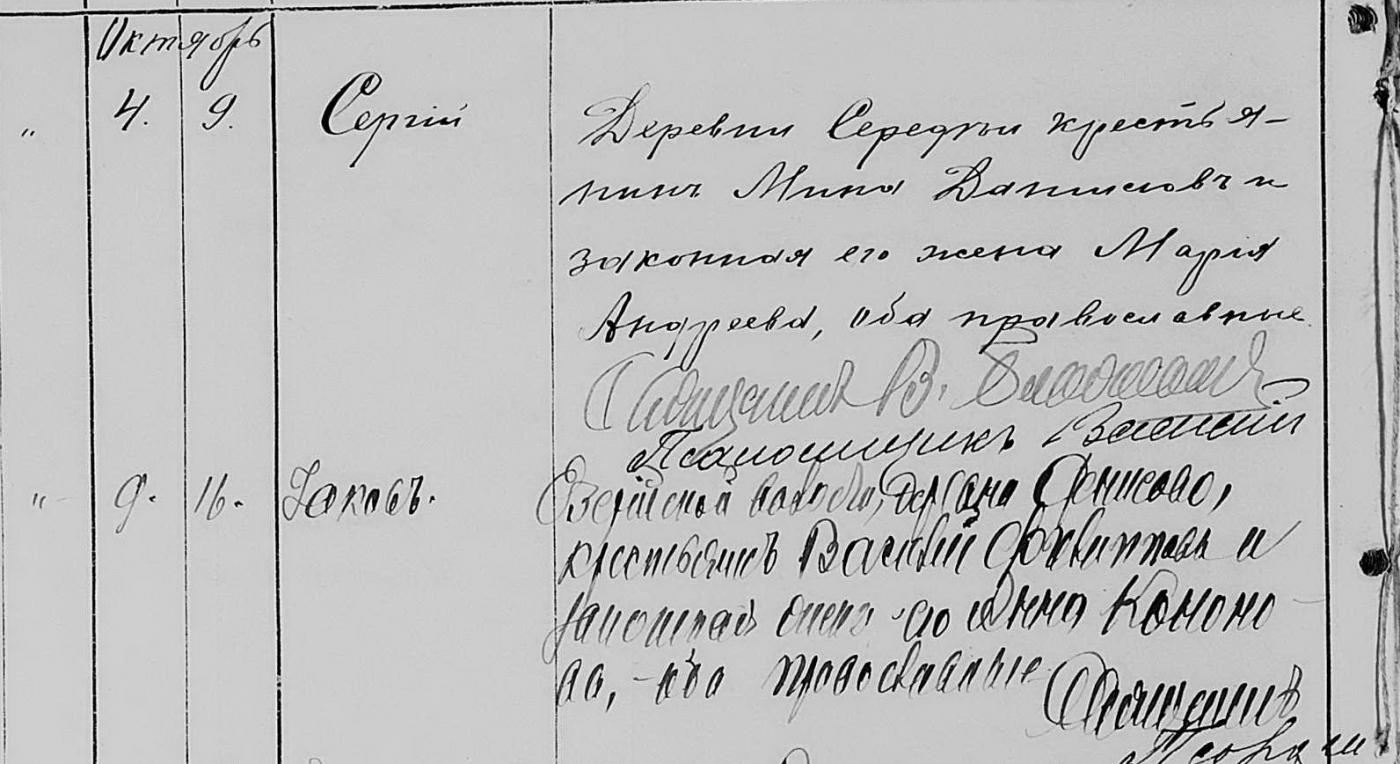 Октябрь
" 4. 9. Сергій
Деревни Середки крестья-
нинъ Мина Даниловъ и
законная его жена Марія
Андреева, оба православные
Священникъ В.
Псаломщикъ Василій
" 9. 16. Іаковъ.
волости,
крестьянинъ Василій и
законная жена его Анна Кононо-
ва, - оба православные
Священникъ